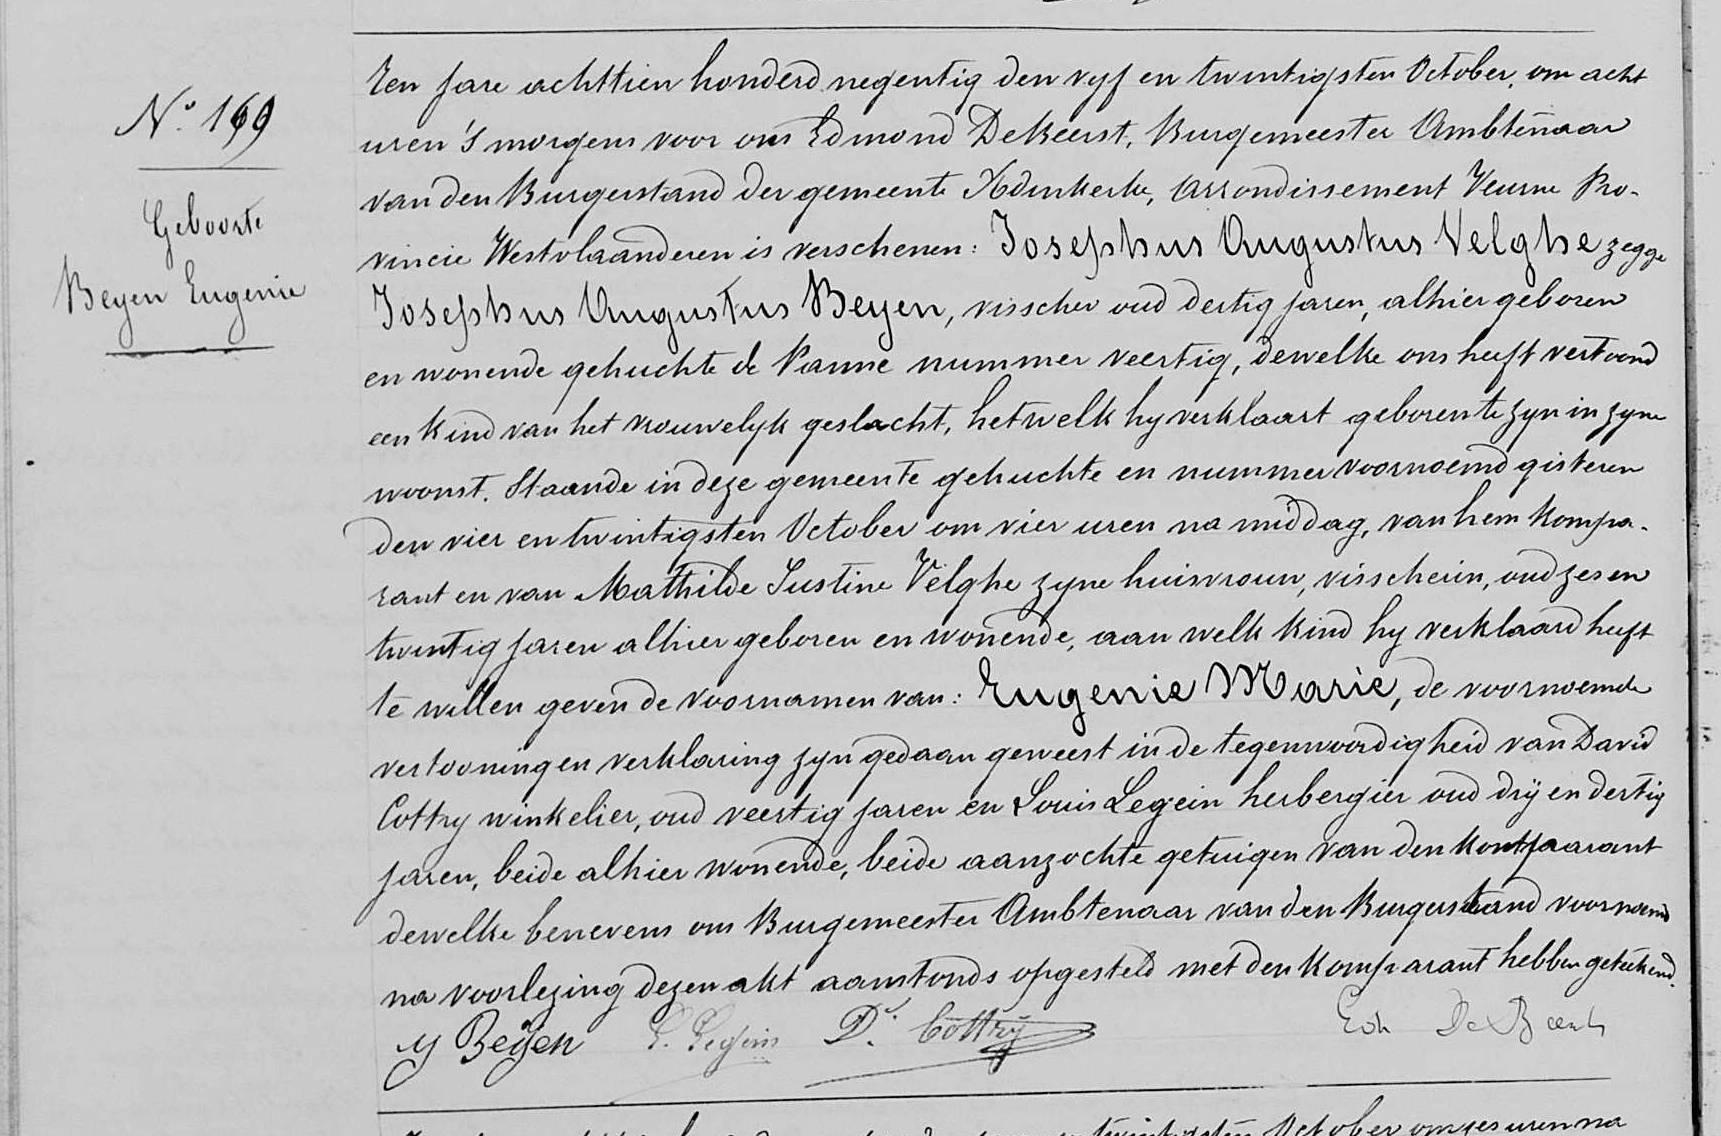 N.º 169
Geboorte
Beyen Eugenie
Ten jare achttien honderd negentig den vyf en twintigsten October, om acht
uren 's morgens voor ons Edmond DeBeerst, Burgemeester Ambtenaar
van den Burgerstand der gemeente Adinkerke, Arrondissement Veurne Pro-
vincie Westvlaanderen is verschenen: Josephus Augustus Velghe zegge
Josephus Augustus Beyen, visscher oud dertig jaren, alhier geboren
en wonende gehuchte de Panne nummer veertig, dewelke ons heeft vertoond
een kind van het vrouwelyk geslacht, hetwelk hy verklaart geboren te zyn in zyne
woonst. Staande in deze gemeente gehuchte en nummer voornoemd gisteren
den vier en twintigsten October om vier uren na middag, van hem kompa-
rant en van Mathilde Justine Velghe zyne huisvrouw, visscherin, oud zes en
twintig jaren alhier geboren en wonende, aan welk kind hy verklaard heeft
te willen geven de voornamen van: Eugenie Marie, de voornoemde
vertooning en verklaring zyn gedaan geweest in de tegenwoordigheid van David
Cottry winkelier, oud veertig jaren en Louis Legein herbergier oud dry en dertig
jaren, beide alhier wonende, beide aanzochte getuigen van den komparant
dewelke benevens ons Burgemeester Ambtenaar van den Burgerstand voornoemd
na voorlezing dezen akt aanstonds opgesteld met den komparant hebben geteekend.
Beyen L. Legein D. Cottry Edm DeBeerst
twintigsten October om zes uren na